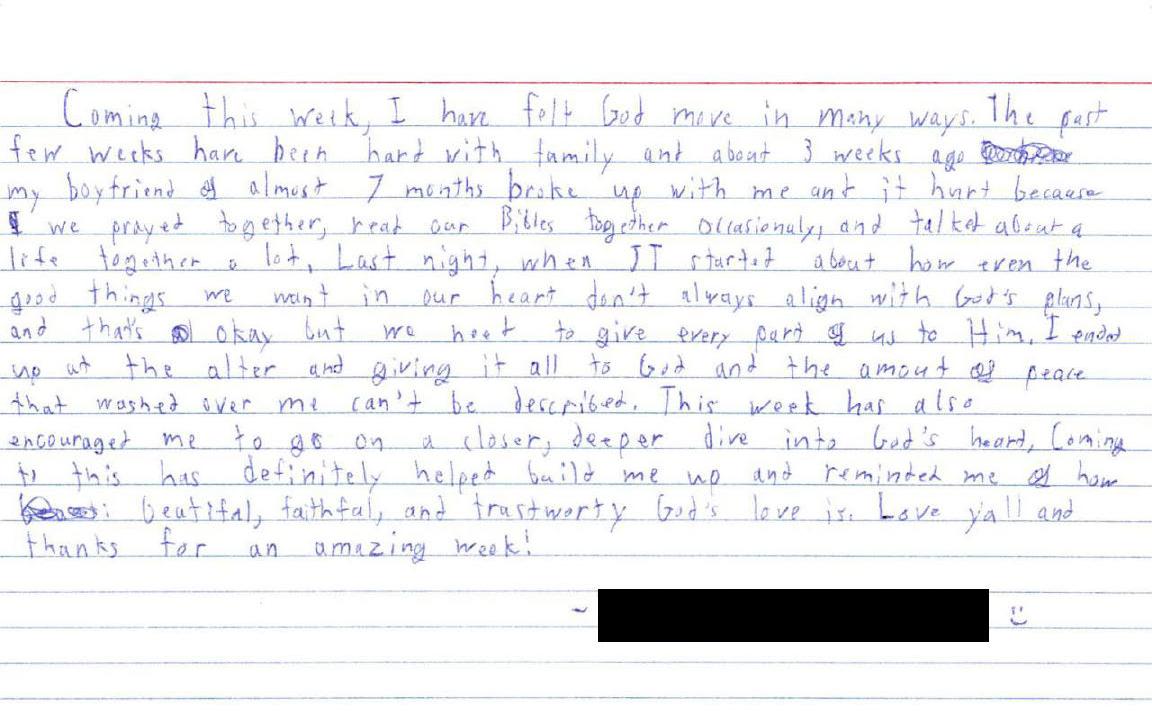 Coming this week, I have felt God move in many ways. The past
few weeks have been hard with family and about 3 weeks ago
my boyfriend of almost 7 months broke up with me and it hurt because
we prayed together, read our Bibles together occasionaly, and talked about a
life together a lot. Last night, when JT started about how even the
good things we want in our heart don't always align with God's plans,
and that's okay but we need to give every part of us to Him. I ended
up at the alter and giving it all to God and the amout of peace
that washed over me can't be described. This week has also
encouraged me to go on a closer, deeper dive into God's heart. Coming
to this has definitely helped build me up and reminded me of how
beutiful, faithful, and trustworty God's love is. Love y'all and
thanks for an amazing week!
~ :)